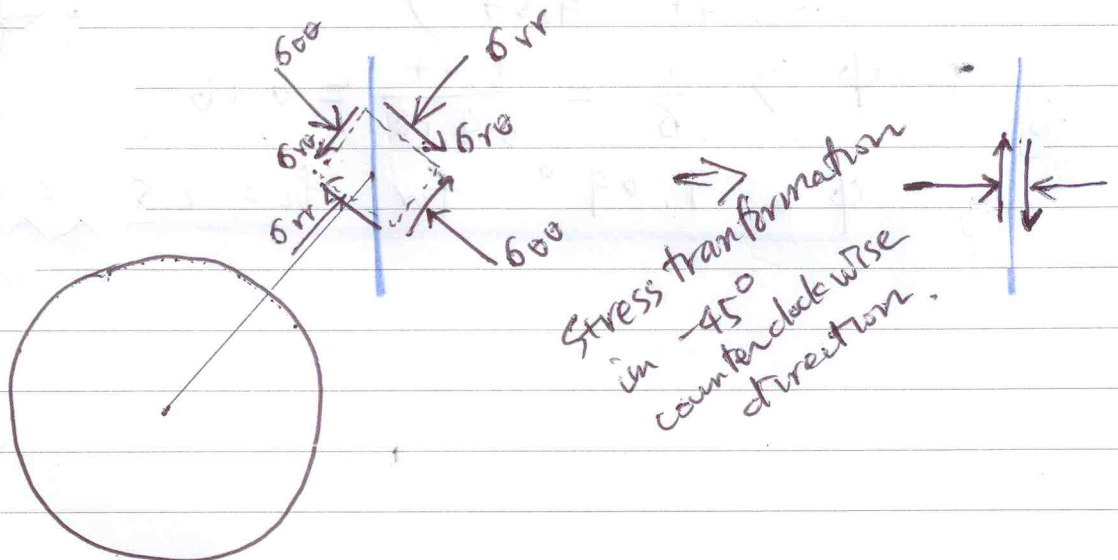 σθθ
σrr
σrθ
σrθ
σrr
σθθ
⇒
Stress tranformation
in -45°
counterclockwise
direction.